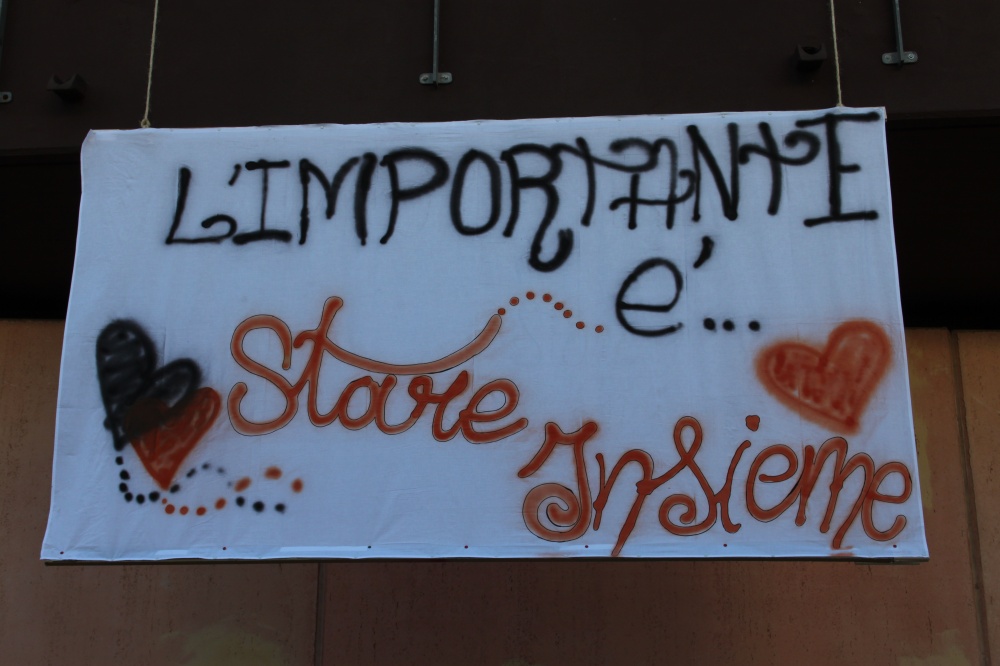 L'IMPORTANTE
e'...
Stare
Insieme